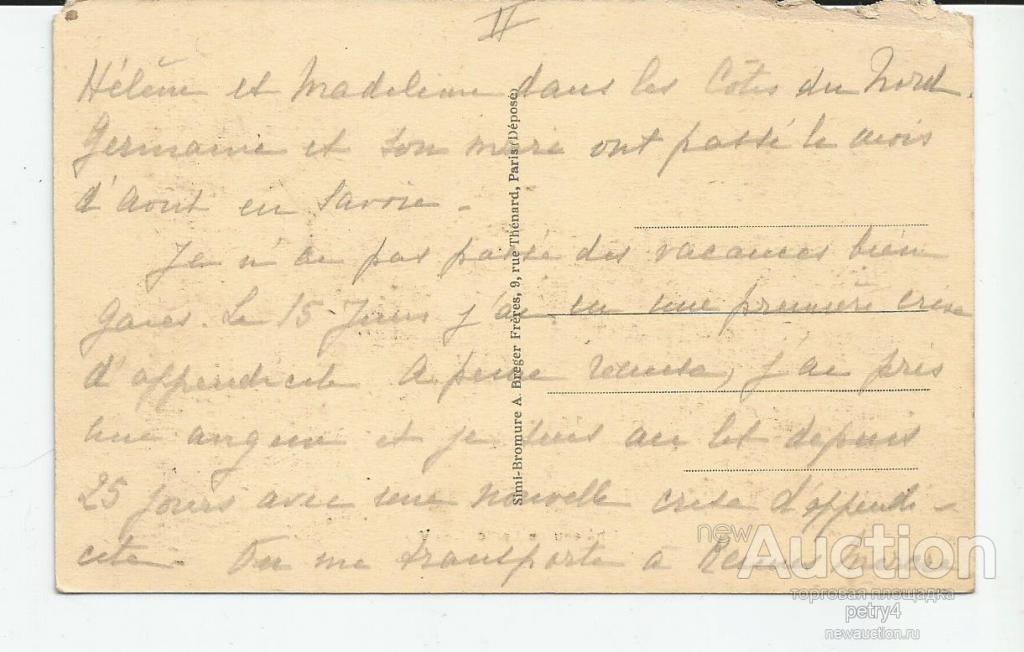 II
Hélène et Madeleine dans les Côtes du Nord.
Germaine et son mari ont passé le mois
d'aout en Savoie.
Je n'ai pas passé des vacances bien
gaies. Le 15 Juin j'ai eu une première crise
d'appendicite A peine remise, j'ai pris
une angine et je suis au lit depuis
25 jours avec une nouvelle crise d'appendi-
cite. On me transporte à Rennes
Simi-Bromure A. Breger Frères, 9, rue Thénard, Paris (Déposé)
newAuction
торговая площадка
petry4
newauction.ru